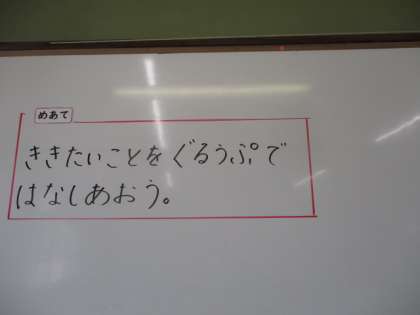 めあて
ききたいことをぐるうぷで
はなしあおう。